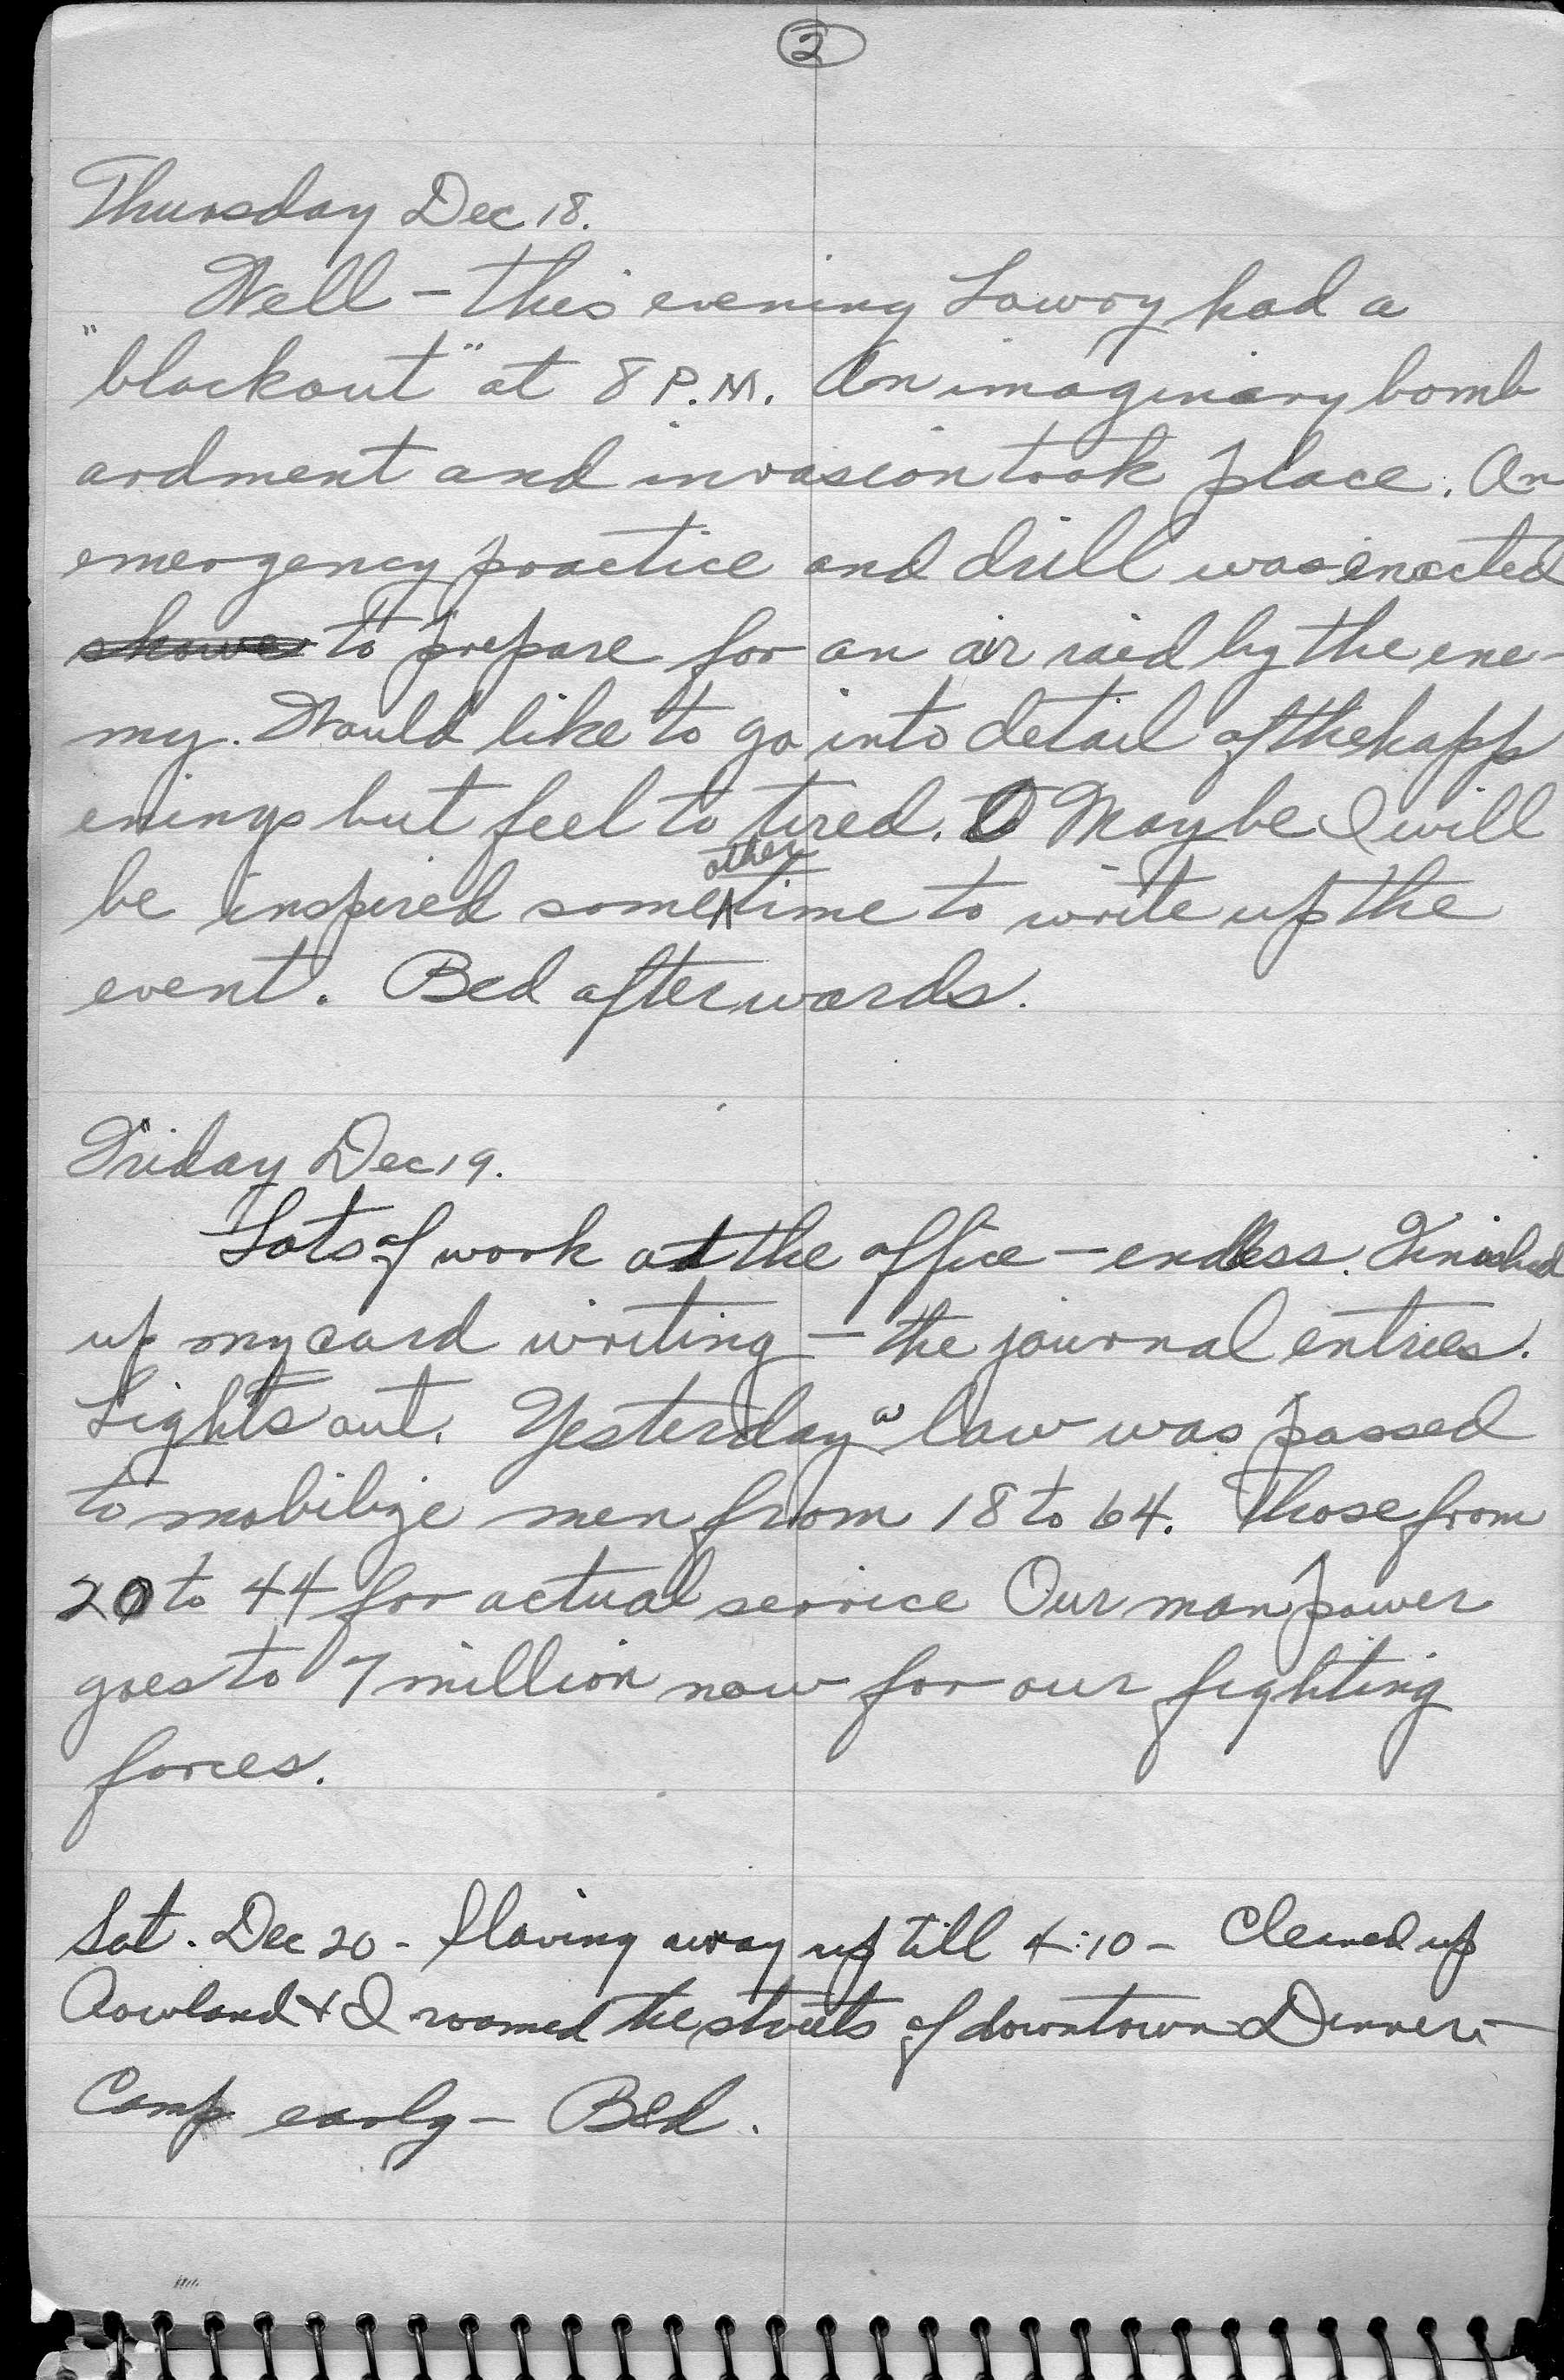 2
Thursday Dec 18.
Well - this evening Lowry had a
"blackout" at 8 P.M. An imaginary bomb
ardment and invasion took place. An
emergency practice and drill was enacted
to prepare for an air raid by the ene-
my. Would like to go into detail of the happ
enings but feel to tired. Maybe I will
be inspired some other time to write up the
event. Bed afterwards.
Friday Dec 19.
Lots of work at the office - endless. Finished
up my card writing - the journal entries.
Lights out. Yesterday a law was passed
to mobilize men from 18 to 64. Those from
20 to 44 for actual service Our man power
goes to 7 million now for our fighting
forces.
Sat. Dec 20 - slaving away up till 4:10 - Cleaned up
Rowland & I roamed the streets of downtown Denver. -
Camp early - Bed.